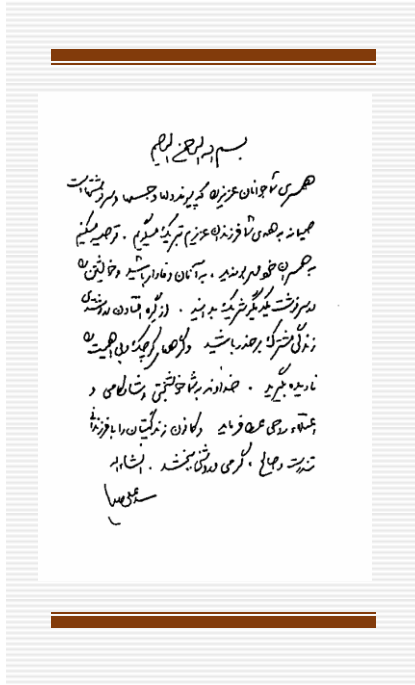 بسم الله الرحمن الرحیم
همسری شما جوانان عزیزی که پیوند دلها و جسمها و سرنوشتهاست
صمیمانه به همه‌ی شما فرزندان عزیزم تبریک میگویم . توصیه میکنم
به همسران خود دل ببندید ، به آنان وفادار باشید و خالیتان
در سرنوشت یکدیگر شریک بدانید . از گره افتادن در رشته‌ی
زندگی مشترک بر حذر باشید و گره‌های کوچک و بی اهمیت را
نادیده بگیرید . خداوند به شما خوشبختی و شادکامی و
اعتلاء روحی عطا فرماید و کانون زندگیتان را با فرزندان
تندرست و صالح ، گرمی و روشنی ببخشد . انشاءالله
سید علی خامنه‌ای